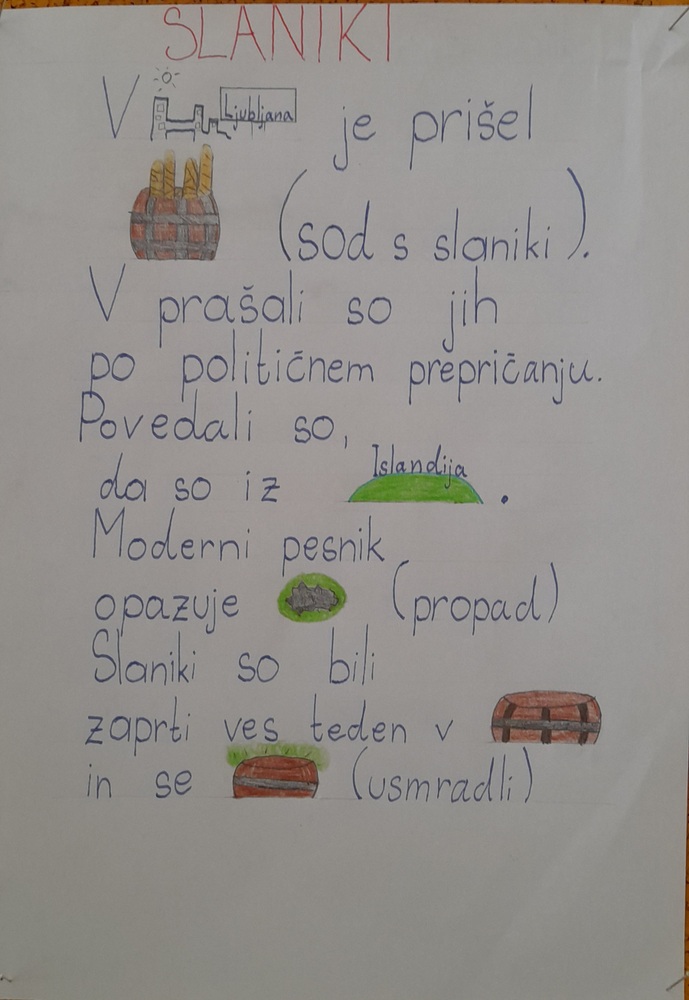 SLANIKI
V Ljubljana je prišel
(sod s slaniki).
V prašali so jih
po političnem prepričanju.
Povedali so,
da so iz Islandija .
Moderni pesnik
opazuje (propad)
Slaniki so bili
zaprti ves teden v
in se (usmradli)